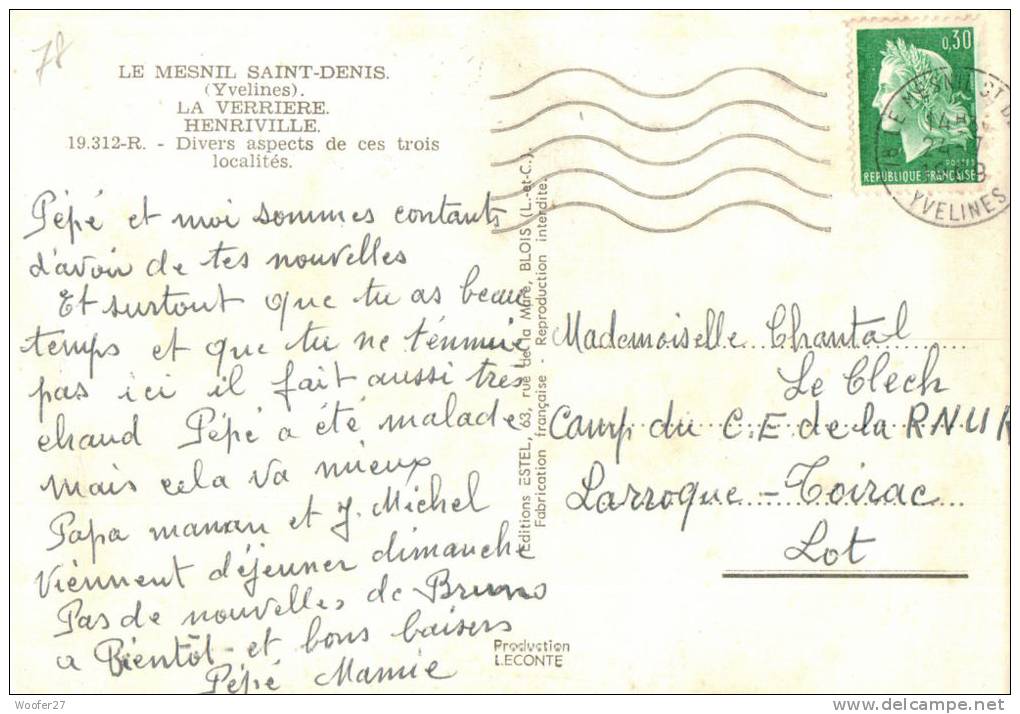 78
LE MESNIL SAINT-DENIS.
(Yvelines).
LA VERRIERE.
HENRIVILLE.
19.312-R. - Divers aspects de ces trois
localités.
Pépé et moi sommes contants
d'avoir de tes nouvelles
Et surtout que tu as beau
temps et que tu ne t'énnuie
pas ici il fait aussi très
chaud Pépé a été malade
mais cela va mieux
Papa maman et J. Michel
viennent déjeuner dimanche
Pas de nouvelles de Bruno
a Bientôt et bons baisers
Pépé Mamie
Editions ESTEL, 63, rue de la Mare, BLOIS (L.-et-C.).
Fabrication française - Reproduction interdite.
Production
LECONTE
0,30
POSTES
REPUBLIQUE FRANÇAISE
LE MESNIL ST D
YVELINES
Mademoiselle Chantal
Le Clech
Camp du C.E de la RNUR
Larroque-Toirac
Lot
Woofer27
delcampe.net